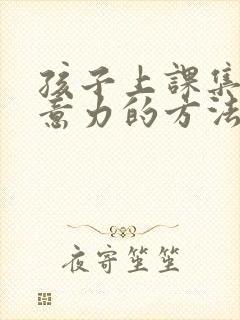 孩子上課集
意力的方法
夜寄笙笙